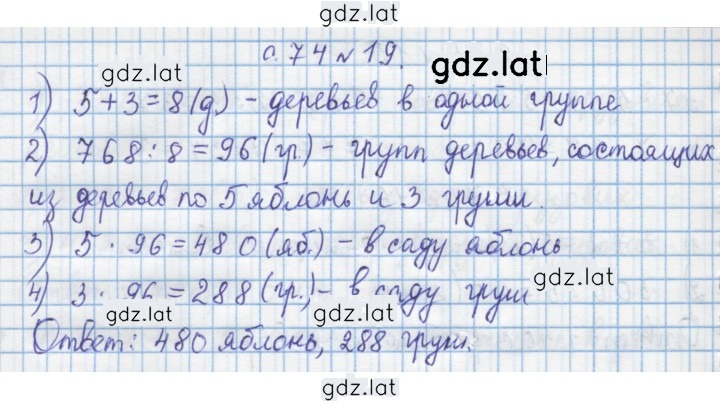 gdz.lat
с. 74 № 19.
gdz.lat
gdz.lat
1) 5 + 3 = 8 (д) - деревьев в одной группе
2) 768 : 8 = 96 (гр.) - групп деревьев, состоящих
из деревьев по 5 яблонь и 3 груши.
3) 5 · 96 = 480 (яб.) - в саду яблонь
4) 3 · 96 = 288 (гр.) - в саду груш
gdz.lat
gdz.lat
gdz.lat
Ответ: 480 яблонь, 288 груш.
gdz.lat